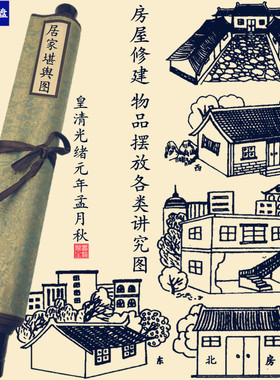 盘
居家堪舆图
房屋修建 物品摆放各类讲究图
皇清光绪元年孟月秋
西
东
北 房